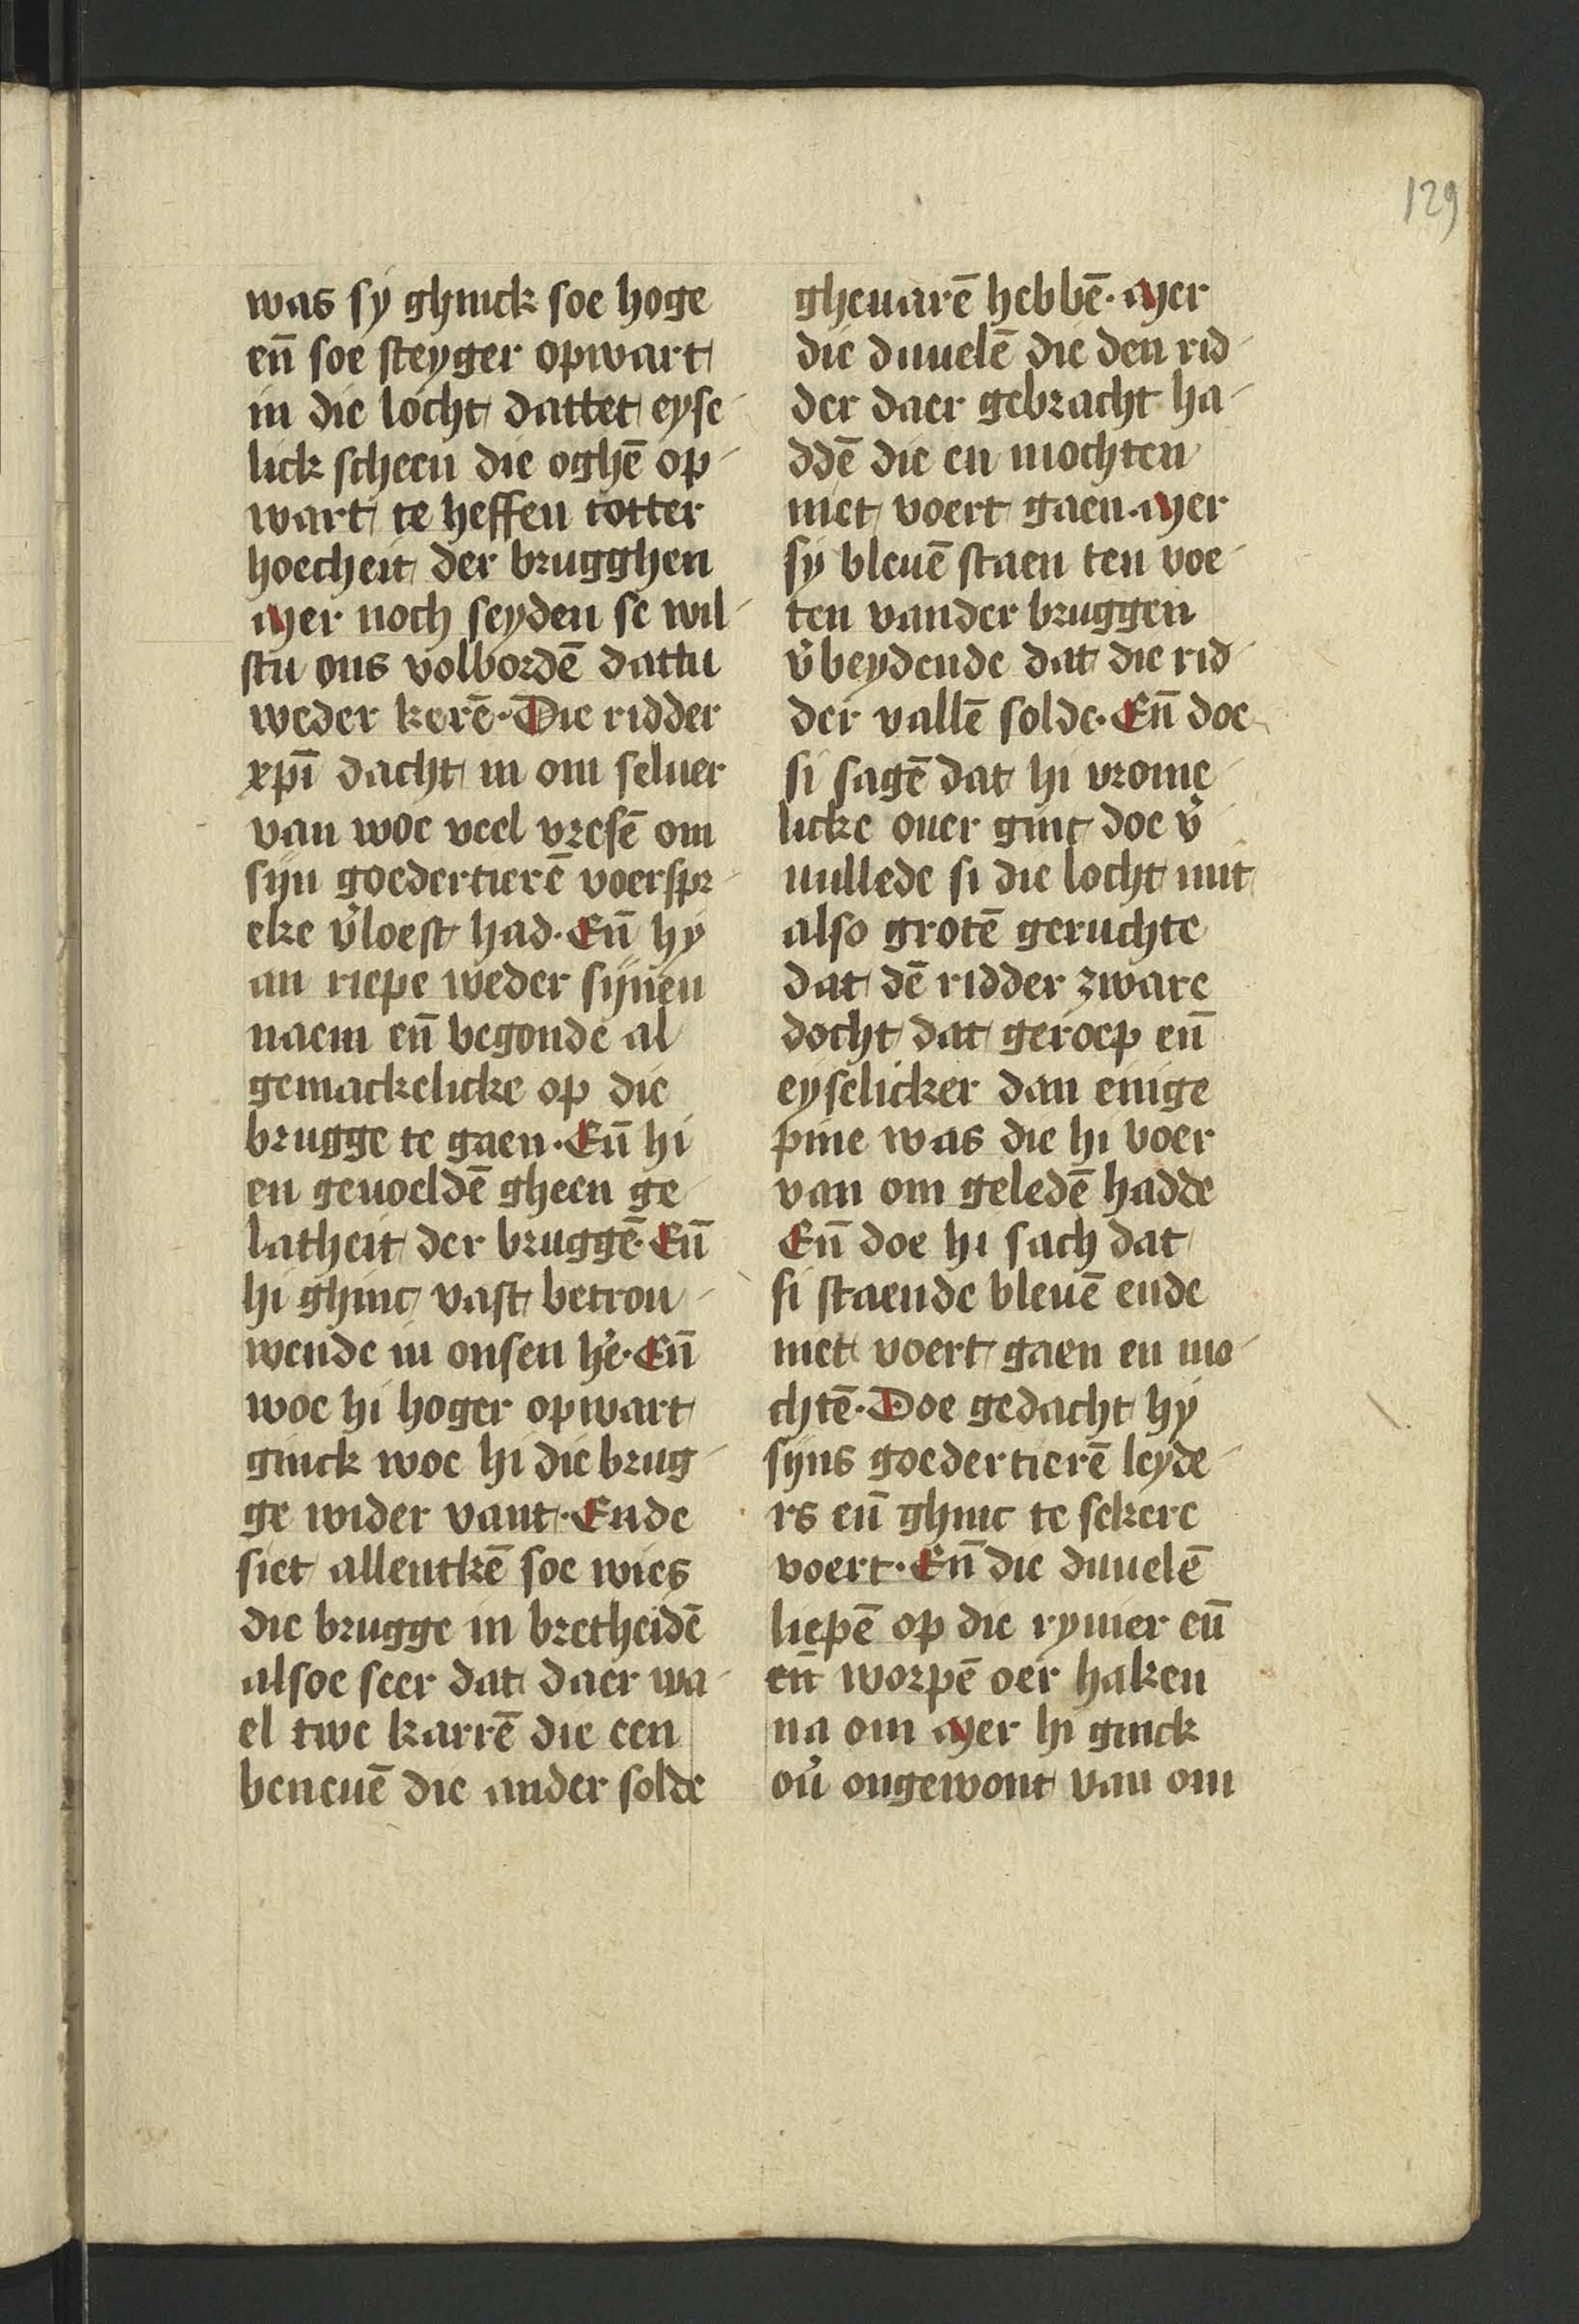 129
was sy ghinck soe hoge
en̄ soe steyger opwart
in die locht dattet eyse-
lick scheen die oghē op-
wart te heffen totter
hoecheit der brugghen
Mer noch seyden se wil-
stu ons volbordē dattu
weder kerē. Die ridder
xpī dacht in om seluer
van woe veel vresē om
sijn goedertierē voerspr-
eke v̓loest had. En̄ hy
an riepe weder sijnen
naem en̄ begonde al
gemackelicke op die
brugge te gaen. En̄ hi
en geuoeldē gheen ge-
latheit der bruggē. En̄
hi ghinc vast betrou-
wende in onsen he̓. En̄
woe hi hoger opwart
ginck woe hi die brug-
ge wider vant. Ende
siet allentkē soe wies
die brugge in bretheidē
alsoe seer dat daer wa-
el twe karrē die een
beneuē die ander solde
gheuarē hebbē. Mer
die duuelē die den rid-
der daer gebracht ha-
ddē die en mochten
niet voert gaen. Mer
sy bleuē staen ten voe-
ten vander bruggen
v̓beydende dat die rid-
der vallē solde. En̄ doe
si sagē dat hi vrome-
licke ouer ginc doe v̓-
uullede si die locht mit
also grotē geruchte
dat dē ridder zware
docht dat geroep en̄
eyselicker dan enige
pine was die hi voer
van om geledē hadde
En̄ doe hi sach dat
si staende bleuē ende
niet voert gaen en mo-
chtē. Doe gedacht hy
sijns goedertierē leyde-
rs en̄ ghinc te sekere
voert. En̄ die duuelē
liepē op die rymer en̄
en̄ worpē oer haken
na om Mer hi ginck
ou̓ ongewont van om